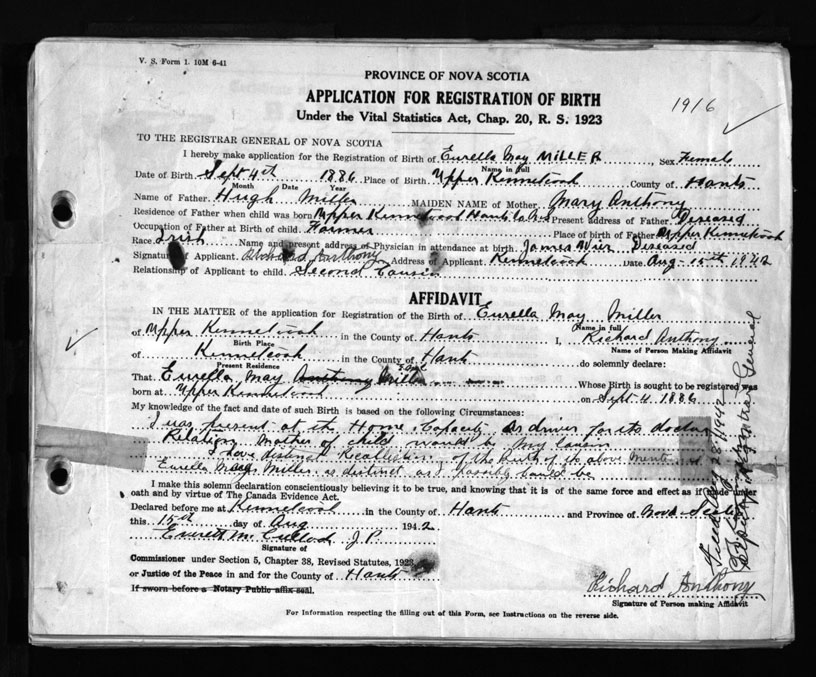 V. S. Form 1. 10M 6-41
PROVINCE OF NOVA SCOTIA
APPLICATION FOR REGISTRATION OF BIRTH
Under the Vital Statistics Act, Chap. 20, R. S. 1923
1916
TO THE REGISTRAR GENERAL OF NOVA SCOTIA
I hereby make application for the Registration of Birth of Eurella May MILLER, Sex Female
Name in full
Date of Birth Sept 4th 1886 Place of Birth Upper Kennetcook County of Hants
Month Date Year
Name of Father Hugh Miller MAIDEN NAME of Mother Mary Anthony
Residence of Father when child was born Upper Kennetcook Hants Present address of Father Deseased
Occupation of Father at Birth of child Farmer Place of birth of Father Upper Kennetcook
Race Irish Name and present address of Physician in attendance at birth James Weir Deseased
Signature of Applicant Richard Anthony Address of Applicant Kennetcook Date Aug 15th 1942
Relationship of Applicant to child Second Cousin
AFFIDAVIT
IN THE MATTER of the application for Registration of the Birth of Eurella May Miller
Name in full
of Upper Kennetcook in the County of Hants I, Richard Anthony
Birth Place Name of Person Making Affidavit
of Kennetcook in the County of Hants do solemnly declare:
Present Residence
That Eurella May Anthony Miller Whose Birth is sought to be registered was
born at Upper Kennetcook on Sept 4 1886
My knowledge of the fact and date of such Birth is based on the following Circumstances:
I was present at the Home, Capacity as driver for its doctor
Relation Mother of child would be my cousin
I have distinct Recallection of the birth of the above
Eurella May Miller as distinct as possibly could be
I make this solemn declaration conscientiously believing it to be true, and knowing that it is of the same force and effect as if made under
oath and by virtue of The Canada Evidence Act.
Declared before me at Kennetcook in the County of Hants and Province of Nova Scotia
this 15th day of Aug 1942
Everett McCulloch J.P.
Signature of
Commissioner under Section 5, Chapter 38, Revised Statutes, 1923
or Justice of the Peace in and for the County of Hants
If sworn before a Notary Public affix seal.
Richard Anthony
Signature of Person making Affidavit
For Information respecting the filling out of this Form, see Instructions on the reverse side.
Filed 28 1942
Registrar General